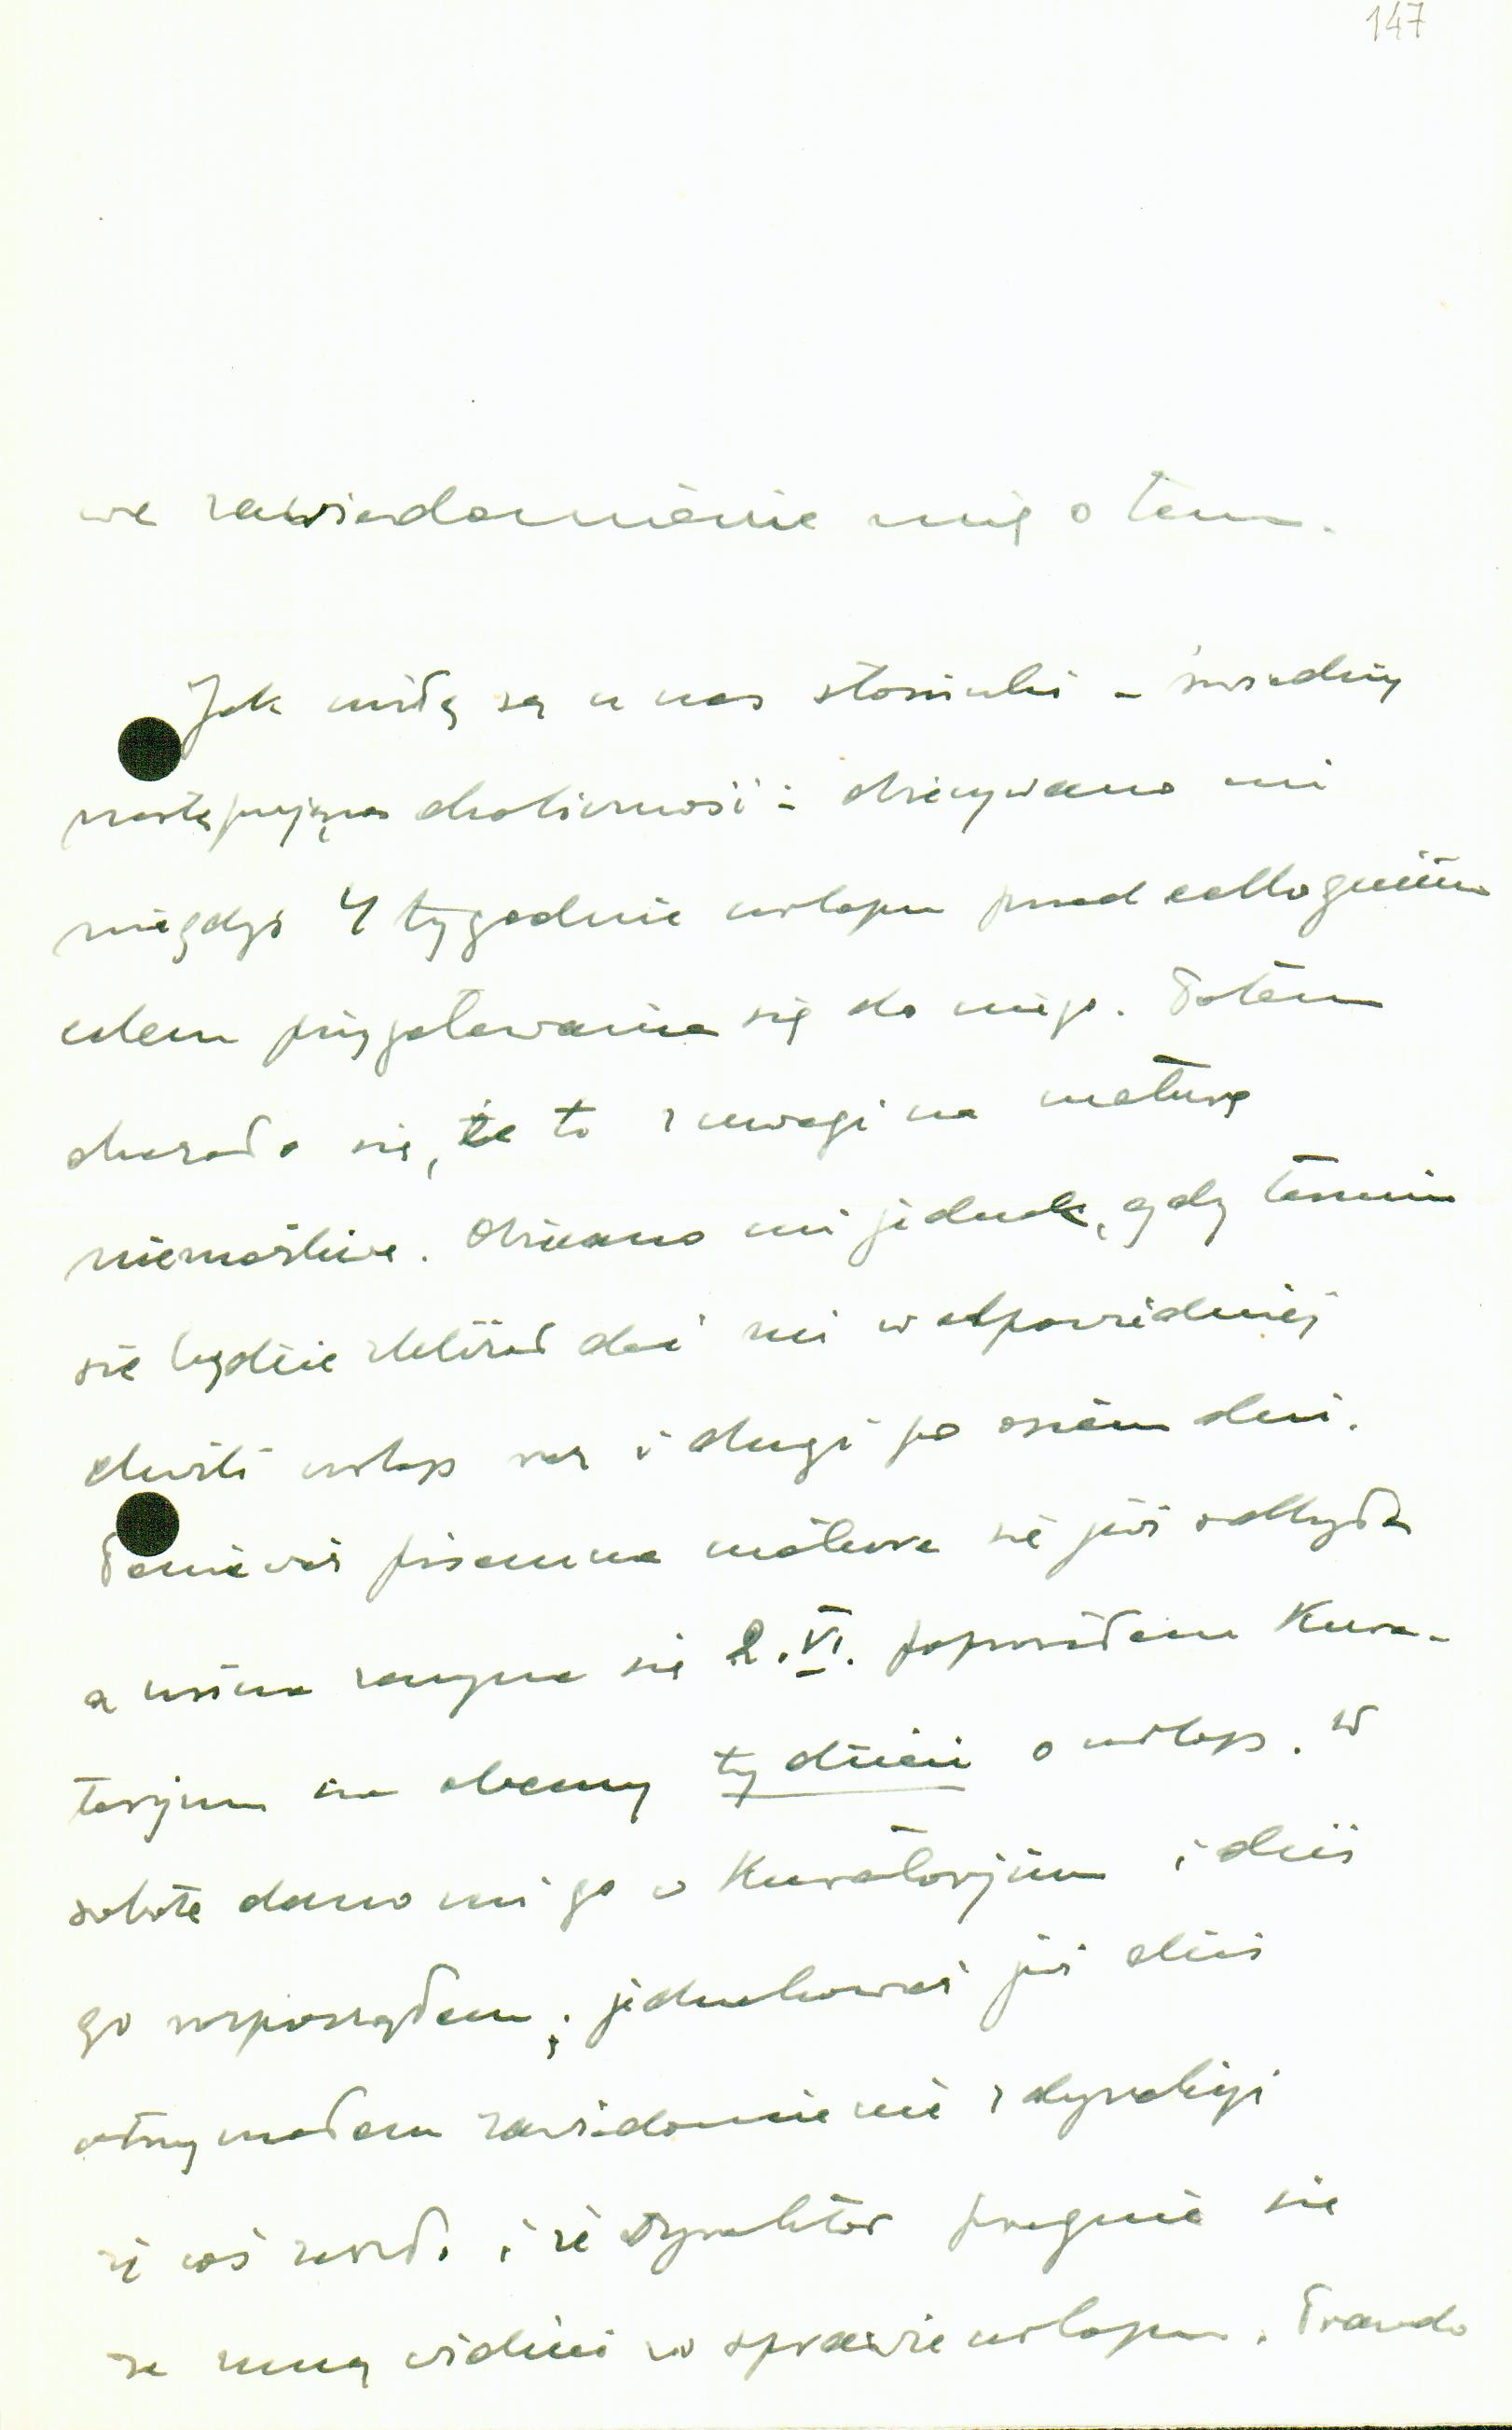 147
we zawiadomienie mię o tem.
Jak miłe są u nas stosunki – świadczy
następująca okoliczność: obiecywano mi
niegdyś 4 tygodnie urlopu przed colloquium
celem przygotowania się do niego. Potem
okazało się, że to z uwagi na maturę
niemożliwe. Obiecano mi jednak, gdy termin
się będzie zbliżał dać mi w odpowiedniej
chwili urlop raz i drugi po osiem dni.
Ponieważ pisemna matura się już odbyła
a ustna zaczyna się 2.VI. poprosiłem Kura-
torjum na obecny tydzień o urlop. W
sobotę dano mi go w Kuratorjum i dziś
go rozpocząłem; jednakowoż już dziś
otrzymałem zawiadomienie z dyrekcji
że coś zaszło i że dyrektor pragnie się
ze mną widzieć w sprawie urlopu. Prawdo